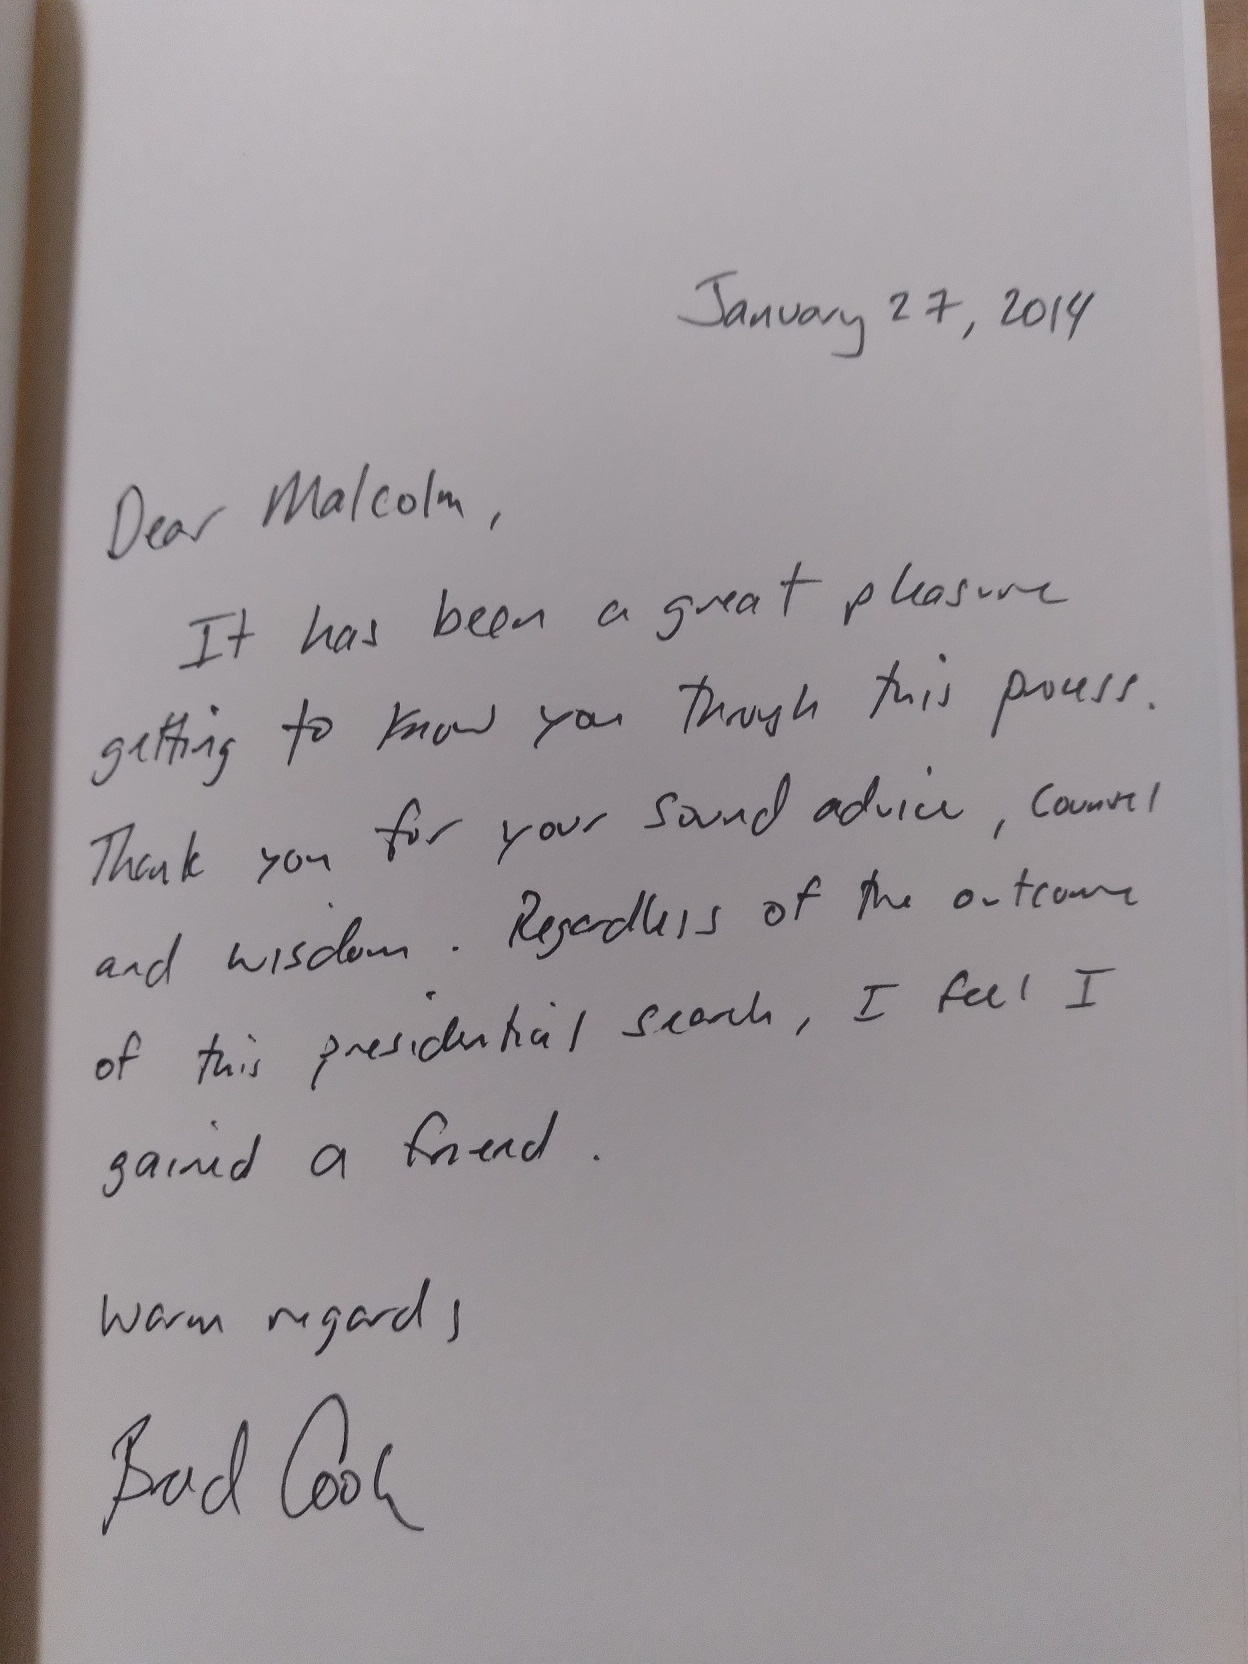 January 27, 2014
Dear Malcolm,
It has been a great pleasure
getting to know you through this process.
Thank you for your sound advice, counsel
and wisdom. Regardless of the outcome
of this presidential search, I feel I
gained a friend.
Warm regards
Brad Cook